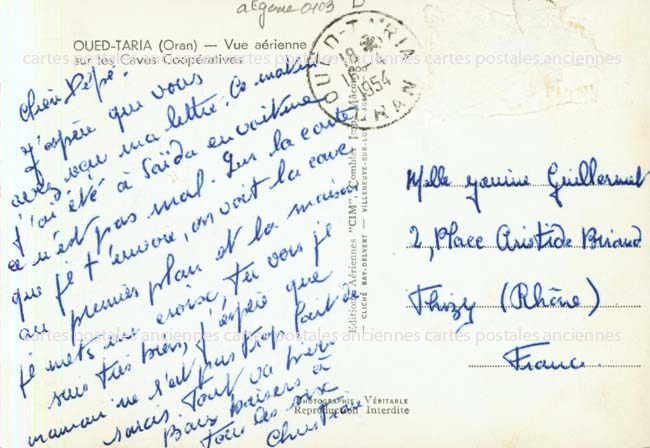 algerie 0103
OUED-TARIA (Oran) — Vue aérienne
sur les Caves Coopératives
OUED-TARIA
18
1954
ORAN
cartes postales anciennes cartes postales anciennes cartes postales anciennes
Chère Pépé.
J'espère que vous
avez reçu ma lettre. Ce matin
j'ai été à Saïda en voiture
ce n'est pas mal. Sur la carte
que je t'envoie, on voit la cave
au premier plan et la maison
je mets une croix. Tu vois je
suis très bien, j'espère que
maman ne s'est pas trop fait de
soucis tout va bien
Bons baisers à
tous les six
Christiane
Editions Aériennes "CIM", Combier Imp. Mâcon
CLICHÉ RAY-DELVERT — VILLENEUVE-SUR-LOT
Melle Yanine Guillermet
2, Place Aristide Briand
Thizy (Rhône)
France
cartes postales anciennes cartes postales anciennes cartes postales anciennes
PHOTOGRAPHIE VÉRITABLE
Reproduction Interdite